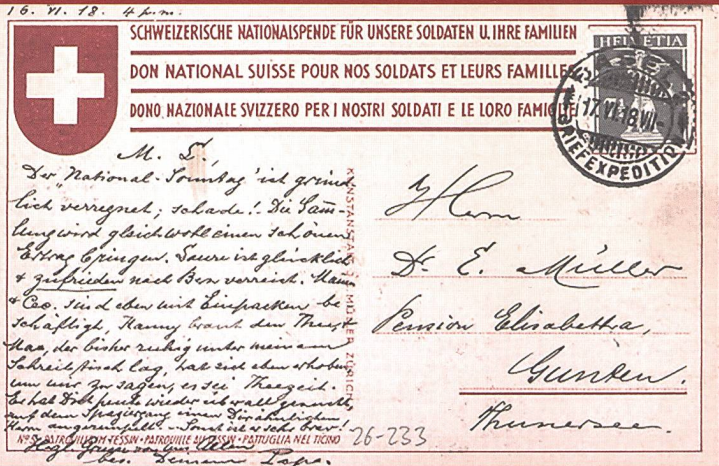 16. VI. 18. 4 p.m.
SCHWEIZERISCHE NATIONALSPENDE FÜR UNSERE SOLDATEN U. IHRE FAMILIEN
DON NATIONAL SUISSE POUR NOS SOLDATS ET LEURS FAMILLES
DONO NAZIONALE SVIZZERO PER I NOSTRI SOLDATI E LE LORO FAMIGLIE
HELVETIA
17.VI.18.VII
BRIEFEXPEDITION
M. L.
Der "National-Sonntag" ist gründ-
lich verregnet; schade! Die Samm-
lung wird gleichwohl einen schönen
Ertrag bringen. ist glücklich
& zufrieden nach Bex verreist. Mama
& Co. sind eben mit Einpacken be-
schäftigt, Hanny braut den Thee, &
Max, der bisher ruhig unter meinem
Schreibtisch lag, hat sich eben erhoben
um mir zu sagen, es sei Theezeit.
Er hat heute wieder
auf dem Spaziergang einen
Herrn
von uns Allen
bes. Deinem Papa.
KUNSTANSTALT J.E. MÜLLER ZÜRICH
Nº 5 PATROUILLE IM TESSIN • PATROUILLE AU TESSIN • PATTUGLIA NEL TICINO
26-233
Herrn
Dr. E. Müller
Pension Elisabetha,
Gunten.
Thunersee.